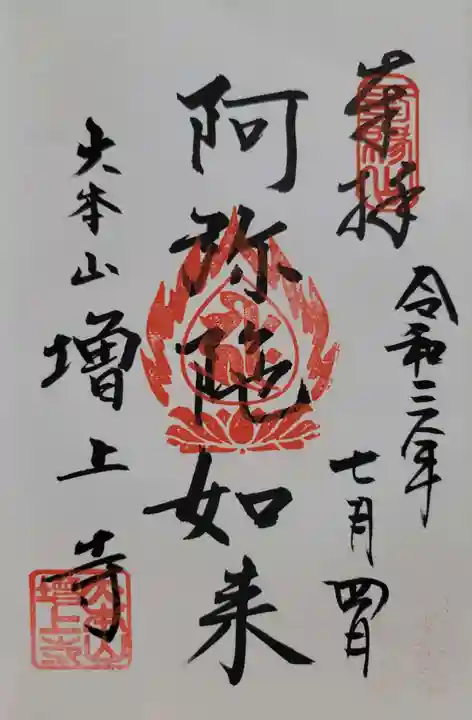 奉拝
令和三年
七月四日
阿弥陀如来
大本山増上寺
大本山
増上寺